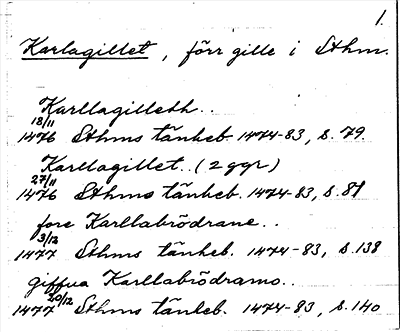 1.
Karlagillet, förr gille i Sthm.
Karllagilleth..
18/11
1476 Sthms tänkeb. 1474-83, s. 79.
Karllagillet.. (2 ggr)
27/11
1476 Sthms tänkeb. 1474-83, s. 81
fore Karllabrödrane..
3/12
1477 Sthms tänkeb. 1474-83, s. 138
giffua Karllabrödramo..
20/12
1477 Sthms tänkeb. 1474-83, s. 140